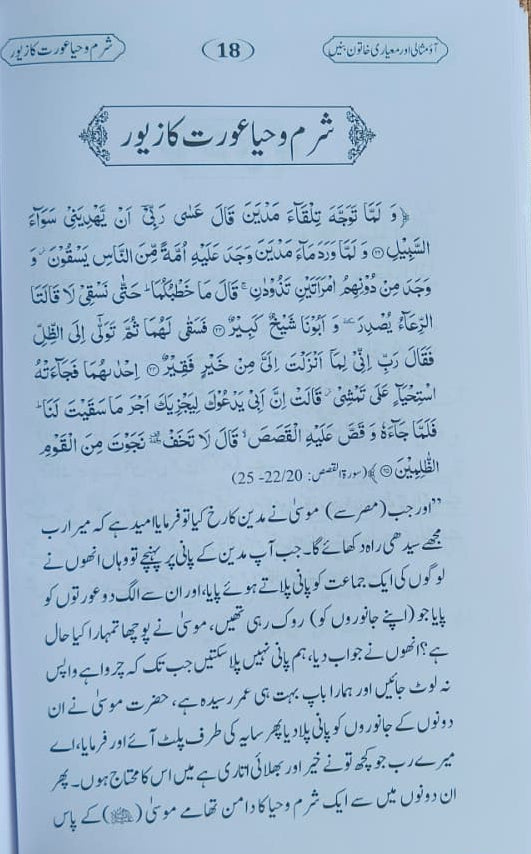 آؤ مثالی اور معیاری خاتون بنیں
18
شرم و حیا عورت کا زیور
شرم و حیا عورت کا زیور
﴿وَ لَمَّا تَوَجَّهَ تِلْقَآءَ مَدْيَنَ قَالَ عَسٰى رَبِّيْۤ اَنْ يَّهْدِيَنِيْ سَوَآءَ
السَّبِيْلِ ۝۲۲ وَ لَمَّا وَرَدَ مَآءَ مَدْيَنَ وَجَدَ عَلَيْهِ اُمَّةً مِّنَ النَّاسِ يَسْقُوْنَ ؗ وَ
وَجَدَ مِنْ دُوْنِهِمُ امْرَاَتَيْنِ تَذُوْدٰنِ ۚ قَالَ مَا خَطْبُكُمَا ؕ حَتّٰى نَسْقِيْ لَا قَالَتَا
الرِّعَآءُ يُصْدِرَ ٚ وَ اَبُوْنَا شَيْخٌ كَبِيْرٌ ۝۲۳ فَسَقٰى لَهُمَا ثُمَّ تَوَلّٰۤى اِلَى الظِّلِّ
فَقَالَ رَبِّ اِنِّيْ لِمَاۤ اَنْزَلْتَ اِلَيَّ مِنْ خَيْرٍ فَقِيْرٌ ۝۲۴ اِحْدٰىهُمَا فَجَآءَتْهُ
اسْتِحْيَآءٍ عَلَى تَمْشِيْ ؗ قَالَتْ اِنَّ اَبِيْ يَدْعُوْكَ لِيَجْزِيَكَ اَجْرَ مَا سَقَيْتَ لَنَا ؕ
فَلَمَّا جَآءَهٗ وَ قَصَّ عَلَيْهِ الْقَصَصَ ۙ قَالَ لَا تَخَفْ ۥ نَجَوْتَ مِنَ الْقَوْمِ
الظّٰلِمِيْنَ ۝۲۵﴾ (سورۃ القصص: 22/20-25)
”اور جب (مصر سے) موسیٰ نے مدین کا رخ کیا تو فرمایا امید ہے کہ میرا رب
مجھے سیدھی راہ دکھائے گا۔ جب آپ مدین کے پانی پر پہنچے تو وہاں انھوں نے
لوگوں کی ایک جماعت کو پانی پلاتے ہوئے پایا، اور ان سے الگ دو عورتوں کو
پایا جو (اپنے جانوروں کو) روک رہی تھیں، موسیٰ نے پوچھا تمہارا کیا حال
ہے؟ انھوں نے جواب دیا، ہم پانی نہیں پلا سکتیں جب تک کہ چرواہے واپس
نہ لوٹ جائیں اور ہمارا باپ بہت ہی عمر رسیدہ ہے، حضرت موسیٰ نے ان
دونوں کے جانوروں کو پانی پلا دیا پھر سایہ کی طرف پلٹ آئے اور فرمایا، اے
میرے رب جو کچھ تو نے خیر اور بھلائی اتاری ہے میں اس کا محتاج ہوں۔ پھر
ان دونوں میں سے ایک شرم و حیا کا دامن تھامے موسیٰ (علیہ السلام) کے پاس